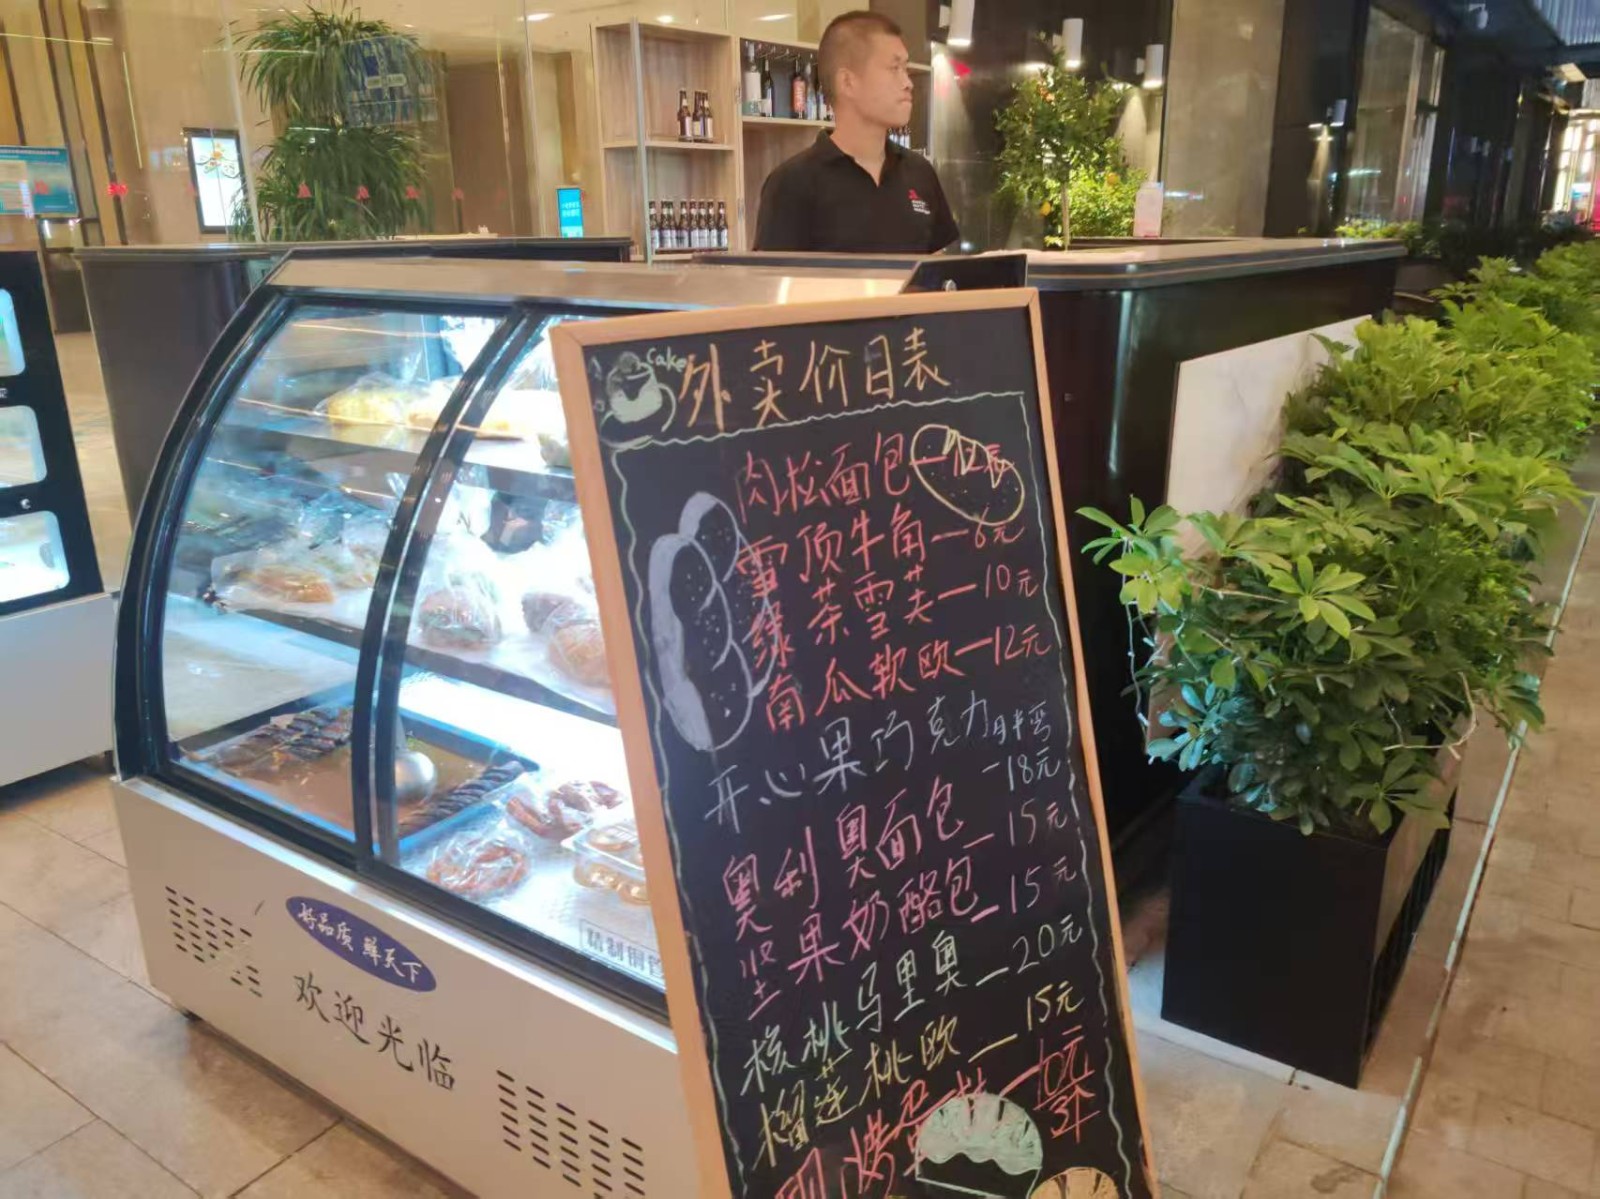 Cake
外卖价目表
肉松面包—12元
雪顶牛角—6元
绿茶雪芙—10元
南瓜软欧—12元
开心果巧克力月半弯
-18元
奥利奥面包—15元
坚果奶酪包—15元
核桃马里奥—20元
榴莲桃欧—15元
现烤蛋挞—10元
3个
好品质 鲜天下
欢迎光临
精制铜管